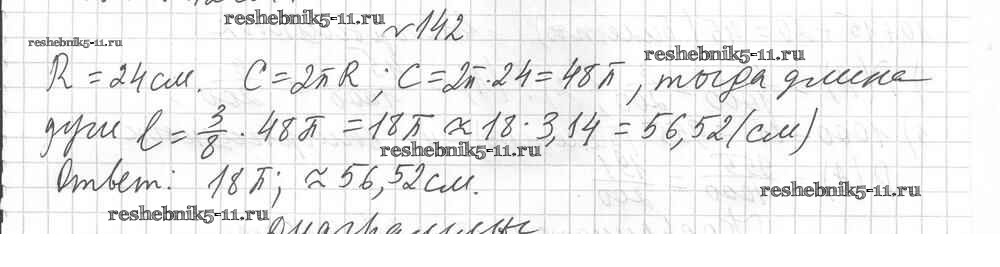 reshebnik5-11.ru
№142
reshebnik5-11.ru
reshebnik5-11.ru
R = 24 см. C = 2πR; C = 2π·24 = 48π, тогда длина
дуги ℓ = 3/8 · 48π = 18π ≈ 18·3,14 = 56,52 (см)
reshebnik5-11.ru
Ответ: 18π; ≈ 56,52 см.
reshebnik5-11.ru
reshebnik5-11.ru